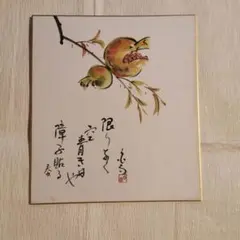 限りなく
空青き日や
障子貼る